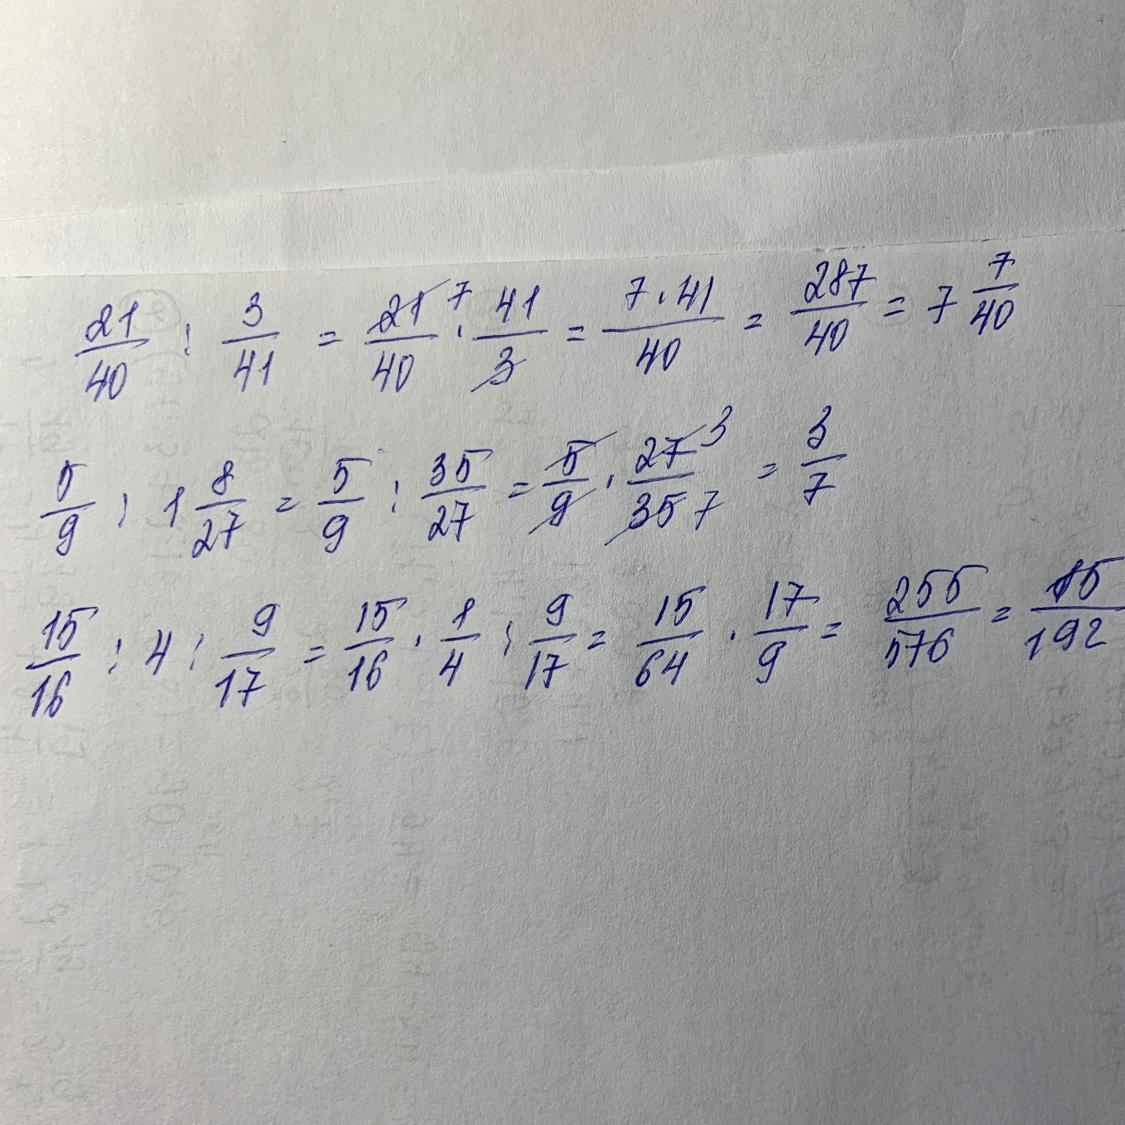 21/40 : 3/41 = 21 7/40 · 41/3 = 7·41/40 = 287/40 = 7 7/40
5/9 : 1 8/27 = 5/9 : 35/27 = 5/9 · 27 3/35 7 = 3/7
15/16 : 4 : 9/17 = 15/16 · 1/4 : 9/17 = 15/64 · 17/9 = 255/576 = 85/192